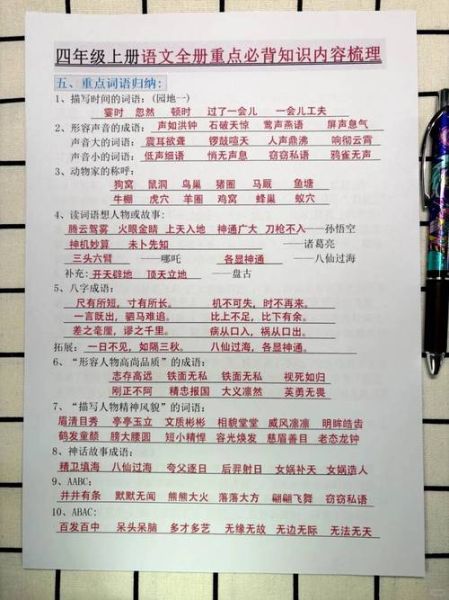 四年级上册语文全册重点必背知识内容梳理
五、重点词语归纳:
1、描写时间的词语:(园地一)
霎时 忽然 顿时 过了一会儿 一会儿工夫
2、形容声音的成语: 声如洪钟 石破天惊 莺声燕语 屏声息气
声音大的词语: 震耳欲聋 锣鼓喧天 人声鼎沸 响彻云霄
声音小的词语: 低声细语 悄无声息 窃窃私语 鸦雀无声
3、动物家的称呼:
狗窝 鼠洞 鸟巢 猪圈 马厩 鱼塘
牛棚 虎穴 羊圈 鸡窝 蜂巢 蚁穴
4、读词语想人物或故事:
腾云驾雾 火眼金睛 上天入地 神通广大 刀枪不入——孙悟空
神机妙算 未卜先知 ——诸葛亮
三头六臂 ——哪吒 各显神通 ——八仙过海
补充: 开天辟地 顶天立地 ——盘古
5、八字成语:
尺有所短,寸有所长。 机不可失,时不再来。
一言既出,驷马难追。 比上不足,比下有余。
差之毫厘,谬之千里。 病从口入,祸从口出。
拓展: 一日不见,如隔三秋。 八仙过海,各显神通。
6、“形容人物高尚品质”的成语:
志存高远 铁面无私 铁面无私 视死如归
刚正不阿 精忠报国 大义凛然 英勇无畏
7、“描写人物精神风貌”的词语:
眉清目秀 亭亭玉立 文质彬彬 相貌堂堂 威风凛凛 明眸皓齿
鹤发童颜 膀大腰圆 短小精悍 容光焕发 慈眉善目 老态龙钟
8、神话故事成语:
精卫填海 八仙过海 夸父逐日 后羿射日 女娲补天 女娲造人
9、AABC:
井井有条 默默无闻 熊熊大火 落落大方 翩翩飞舞 窃窃私语
10、ABAC:
百发百中 呆头呆脑 多才多艺 无缘无故 无边无际 无法无天